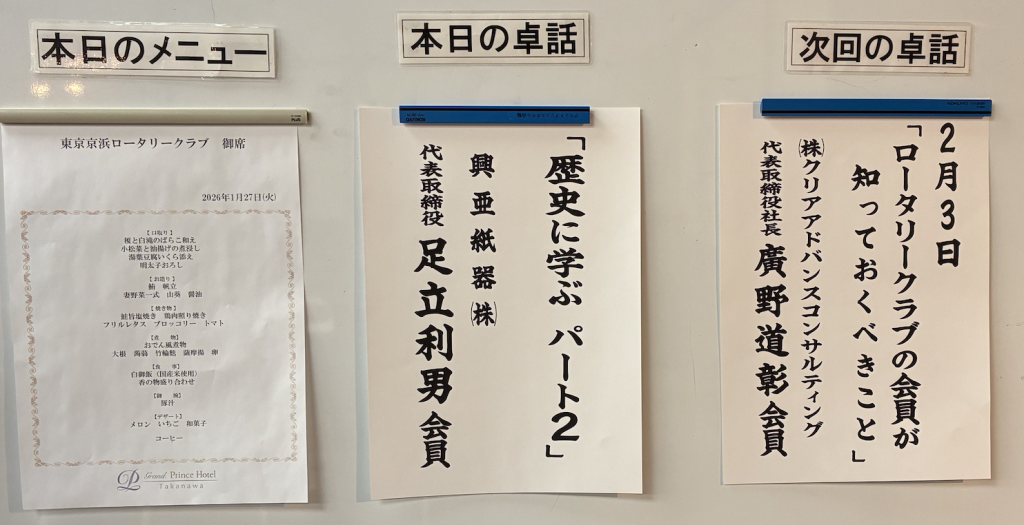 本日のメニュー
東京京浜ロータリークラブ 御席
2026年1月27日(火)
【口取り】
榎と白滝のばらこ和え
小松菜と油揚げの煮浸し
湯葉豆腐いくら添え
明太子おろし
【お造り】
鮪 帆立
妻野菜一式 山葵 醤油
【焼き物】
鮭旨塩焼き 鶏肉照り焼き
フリルレタス ブロッコリー トマト
【煮 物】
おでん風煮物
大根 蒟蒻 竹輪麩 薩摩揚 卵
【食 事】
白御飯(国産米使用)
香の物盛り合わせ
【御 椀】
豚汁
【デザート】
メロン いちご 和菓子
コーヒー
Grand Prince Hotel
Takanawa
本日の卓話
「歴史に学ぶ パート2」
興亜紙器㈱
代表取締役 足立利男会員
次回の卓話
2月3日
「ロータリークラブの会員が
知っておくべきこと」
㈱クリアアドバンスコンサルティング
代表取締役社長 廣野道彰会員